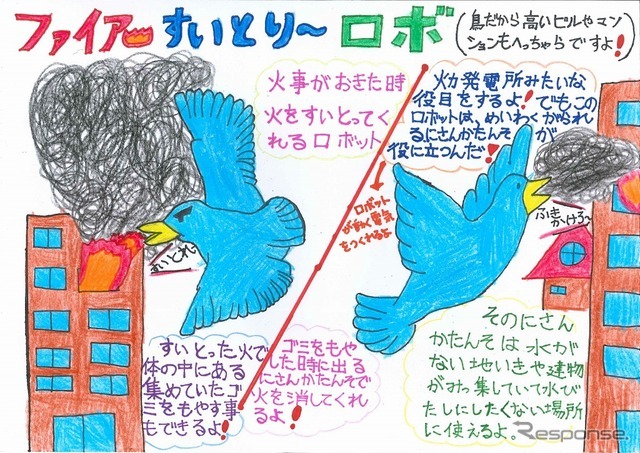 ファイアーすいとり〜ロボ
(鳥だから高いビルやマン
ションもへっちゃらですよ!)
火事がおきた時
火をすいとってく
れるロボット
火力発電所みたいな
役目をするよ!でもこの
ロボットは、めいわくがられ
るにさんかたんそが
役に立つんだ!
ロボット
が動く電気
をつくれるよ
すいとれ〜
ふきかけろ〜
すいとった火で
体の中にある
集めていたゴ
ミをもやす事
もできるよ!
ゴミをもや
した時に出る
にさんかたんそで
火を消してくれ
るよ!
そのにさん
かたんそは水が
ない地いきや建物
がみっ集していて水び
たしにしたくない場所
に使えるよ。
Response.